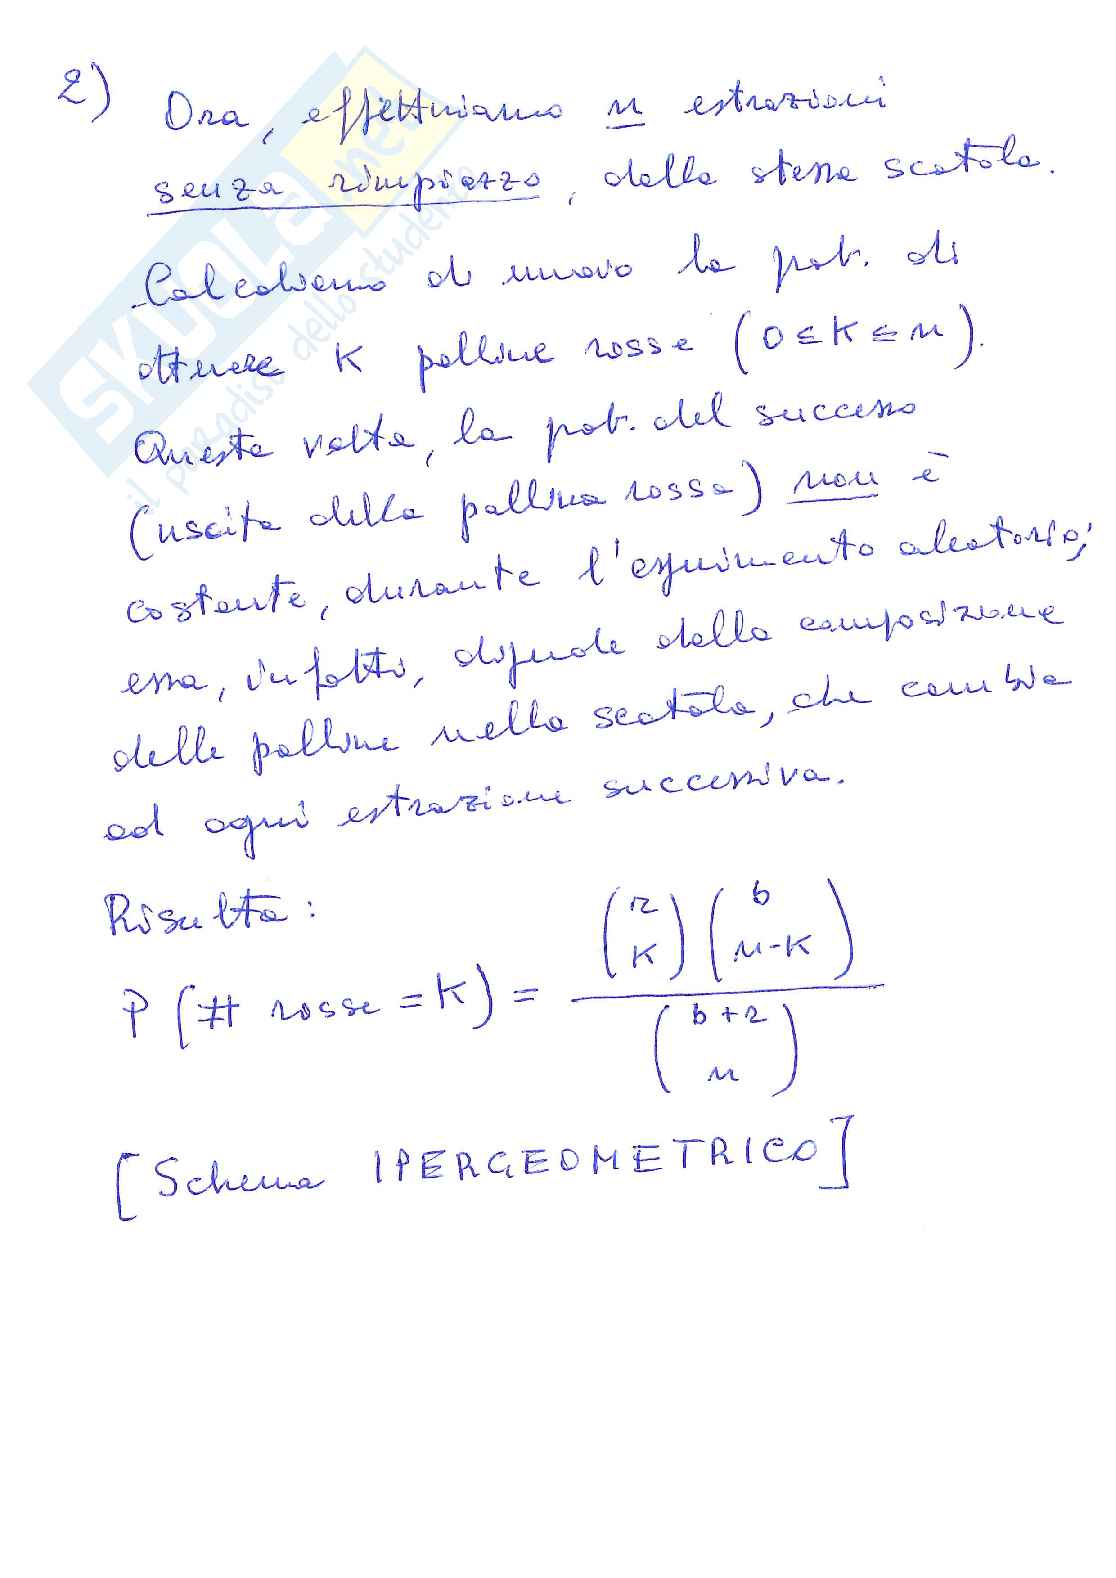 2) Ora, effettuiamo n estrazioni
senza rimpiazzo, dalla stessa scatola.
Calcoliamo di nuovo la prob. di
ottenere K palline rosse (0 ≤ K ≤ n).
Questa volta, la prob. del successo
(uscita della pallina rossa) non è
costante, durante l'esperimento aleatorio;
essa, infatti, dipende dalla composizione
delle palline nella scatola, che cambia
ad ogni estrazione successiva.
Risulta:
P(# rosse = K) = \frac{\binom{r}{K}\binom{b}{n-K}}{\binom{b+r}{n}}
[Schema IPERGEOMETRICO]
SKUOLA.net
il paradiso dello studente